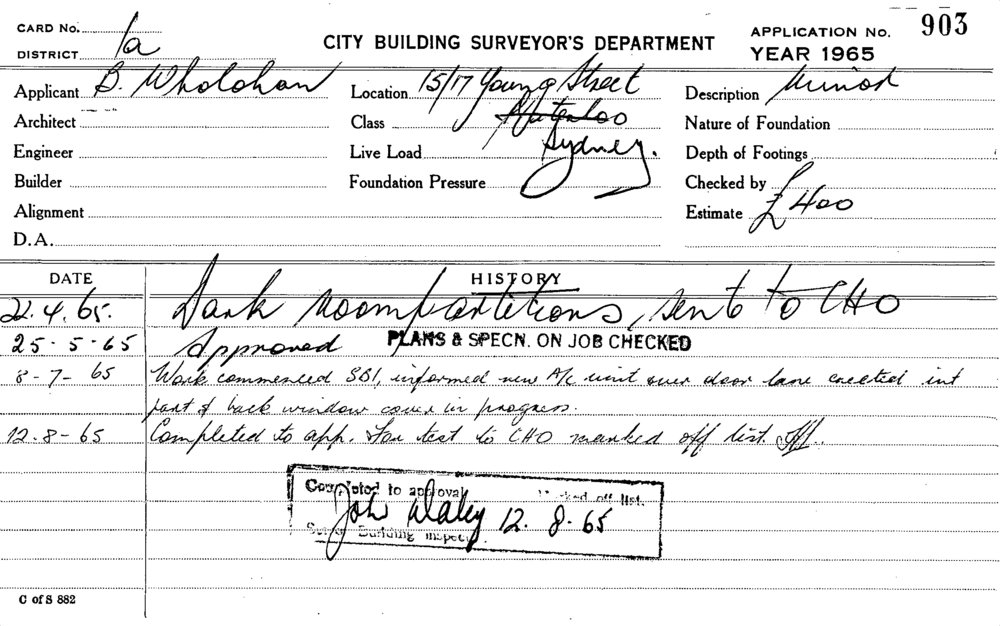 CARD No.
903
DISTRICT 1a
CITY BUILDING SURVEYOR'S DEPARTMENT
APPLICATION No.
YEAR 1965
Applicant B. Wholohan
Location 15/17 Young Street
Description Minor
Architect
Class Waterloo
Nature of Foundation
Engineer
Live Load Sydney.
Depth of Footings
Builder
Foundation Pressure
Checked by
Alignment
Estimate £400
D.A.
DATE
HISTORY
22.4.65. Dark room partitions, sent to CHO
25-5-65 Approved PLANS & SPECN. ON JOB CHECKED
8-7-65 Work commenced SBI, informed new A/c unit over door lane erected int
part of back window cover in progress.
12.8-65 Completed to app. Fan test to CHO marked off list.
Completed to approval Marked off list.
12.8.65
Building Inspec
C of S 882